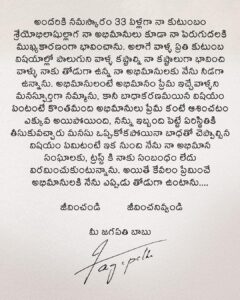 అందరికి నమస్కారం 33 ఏళ్లుగా నా కుటుంబం
శ్రేయోభిలాషుల్లాగ నా అభిమానులు కూడా నా పెరుగుదలకి
ముఖ్యకారణంగా భావించాను. అలాగే వాళ్ళ ప్రతి కుటుంబ
విషయాల్లో పాలుగుని వాళ్ళ కష్టాల్ని నా కష్టాలుగా భావించి
వాళ్ళు నాకు తోడుగా ఉన్న నా అభిమానులకు నేను నీడగా
ఉన్నాను. అభిమానులంటే అభిమానం ప్రేమ ఇచ్చేవాళ్ళని
మనస్ఫూర్తిగా నమ్మాను. కాని బాధాకరణమయిన విషయం
ఏంటంటే కొంతమంది అభిమానులు ప్రేమ కంటే ఆశించటం
ఎక్కువ అయిపోయింది, నన్ను ఇబ్బంది పెట్టే పరిస్థితికి
తీసుకువచ్చారు మనసు ఒప్పుకోకపోయినా బాధతో చెప్పాల్సిన
విషయం ఏమిటంటే ఇక నుంచి నేను నా అభిమాన
సంఘాలకు, ట్రస్ట్ కి నాకు సంబంధం లేదు
విరమించుకుంటున్నాను. అయితే కేవలం ప్రేమించే
అభిమానులకి నేను ఎప్పుడు తోడుగా ఉంటాను....
జీవించండి జీవించనివ్వండి
మీ జగపతి బాబు